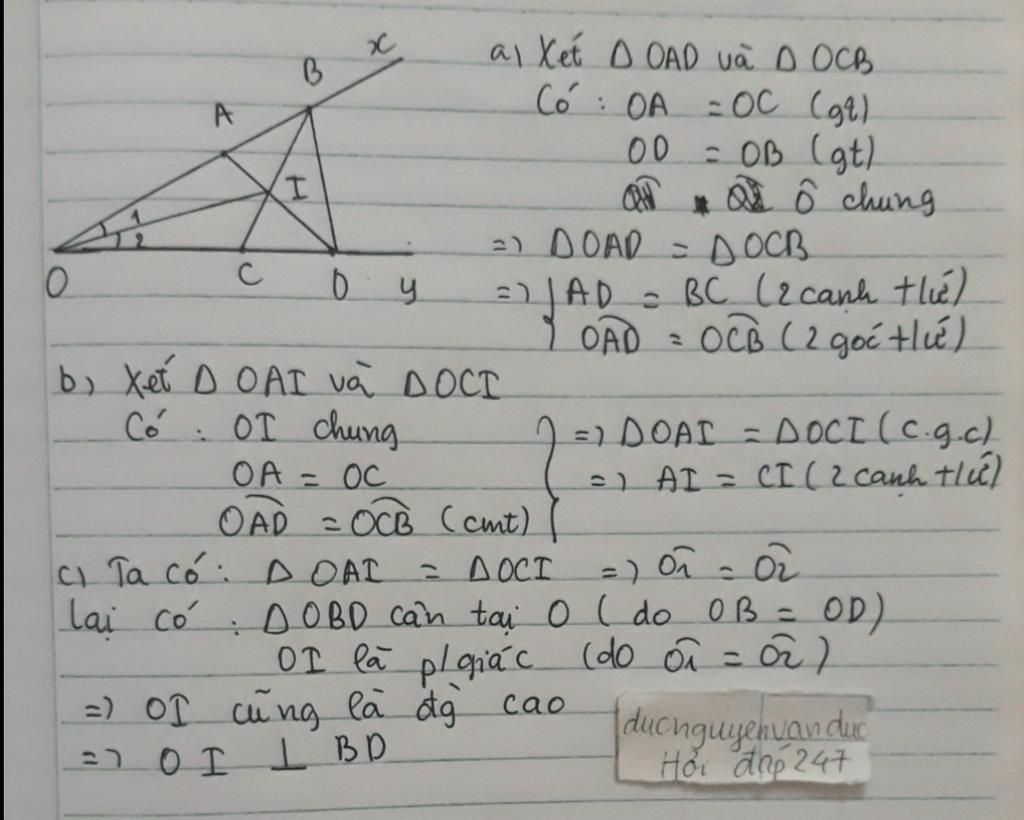 x
B
A
I
1
2
O
C
D
y
a) Xét Δ OAD và Δ OCB
Có : OA = OC (gt)
OD = OB (gt)
Ô chung
=> ΔOAD = ΔOCB
=> { AD = BC (2 cạnh t/ứ)
OAD̂ = OCB̂ (2 góc t/ứ)
b) Xét Δ OAI và ΔOCI
Có : OI chung
OA = OC
OAD̂ = OCB̂ (cmt)
} => ΔOAI = ΔOCI (c.g.c)
=> AI = CI (2 cạnh t/ứ)
c) Ta có : Δ OAI = ΔOCI => Ô1 = Ô2
lại có : ΔOBD cân tại O ( do OB = OD)
OI là p/giác (do Ô1 = Ô2)
=> OI cũng là đg cao
=> OI ⊥ BD
ducnguyenvanduc
Hỏi đáp 247